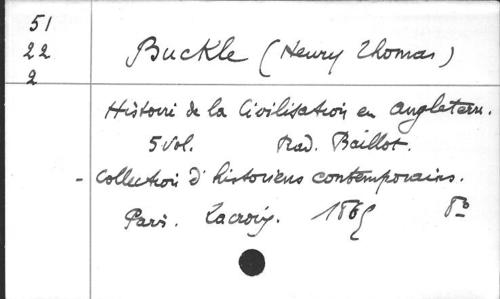 51
22
2
Buckle (Henry Thomas)
Histoire de la Civilisation en Angleterre.
5 vol. Trad. Baillot.
- Collection d'historiens contemporains.
Paris. Lacroix. 1865 8º